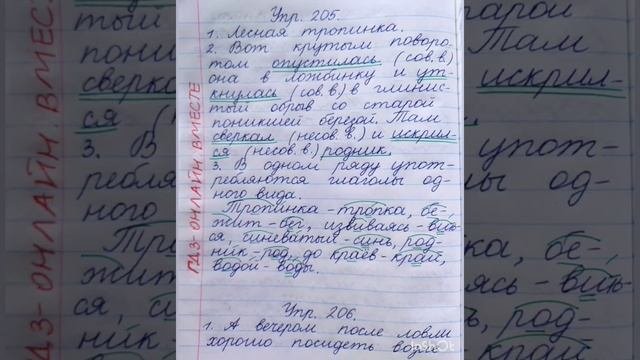 Упр. 205.
1. Лесная тропинка.
2. Вот крутым поворо-
том опустилась (сов.в.)
она в ложбинку и ут-
кнулась (сов.в.) в глинис-
тый обрыв со старой
поникшей березой. Там
сверкал (несов.в.) и искрил-
ся (несов.в.) родник.
3. В одном ряду упот-
ребляются глаголы од-
ного вида.
Тропинка - тропка, бе-
жит - бег, извиваясь - вить-
ся, синеватый - синь, род-
ник - род, до краёв - край,
водой - воды.
Упр. 206.
1. А вечером после ловли
хорошо посидеть возле
ГДЗ-ОНЛАЙН ВМЕСТЕ
InShOt